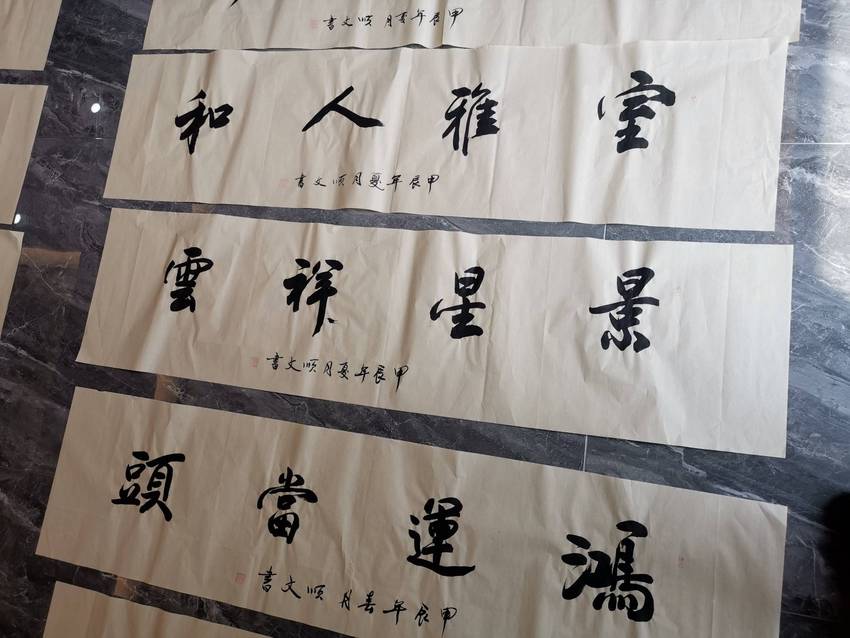 甲辰年春月顺文書
室雅人和
甲辰年夏月顺文書
景星祥雲
甲辰年夏月顺文書
鴻運當頭
甲辰年春月顺文書